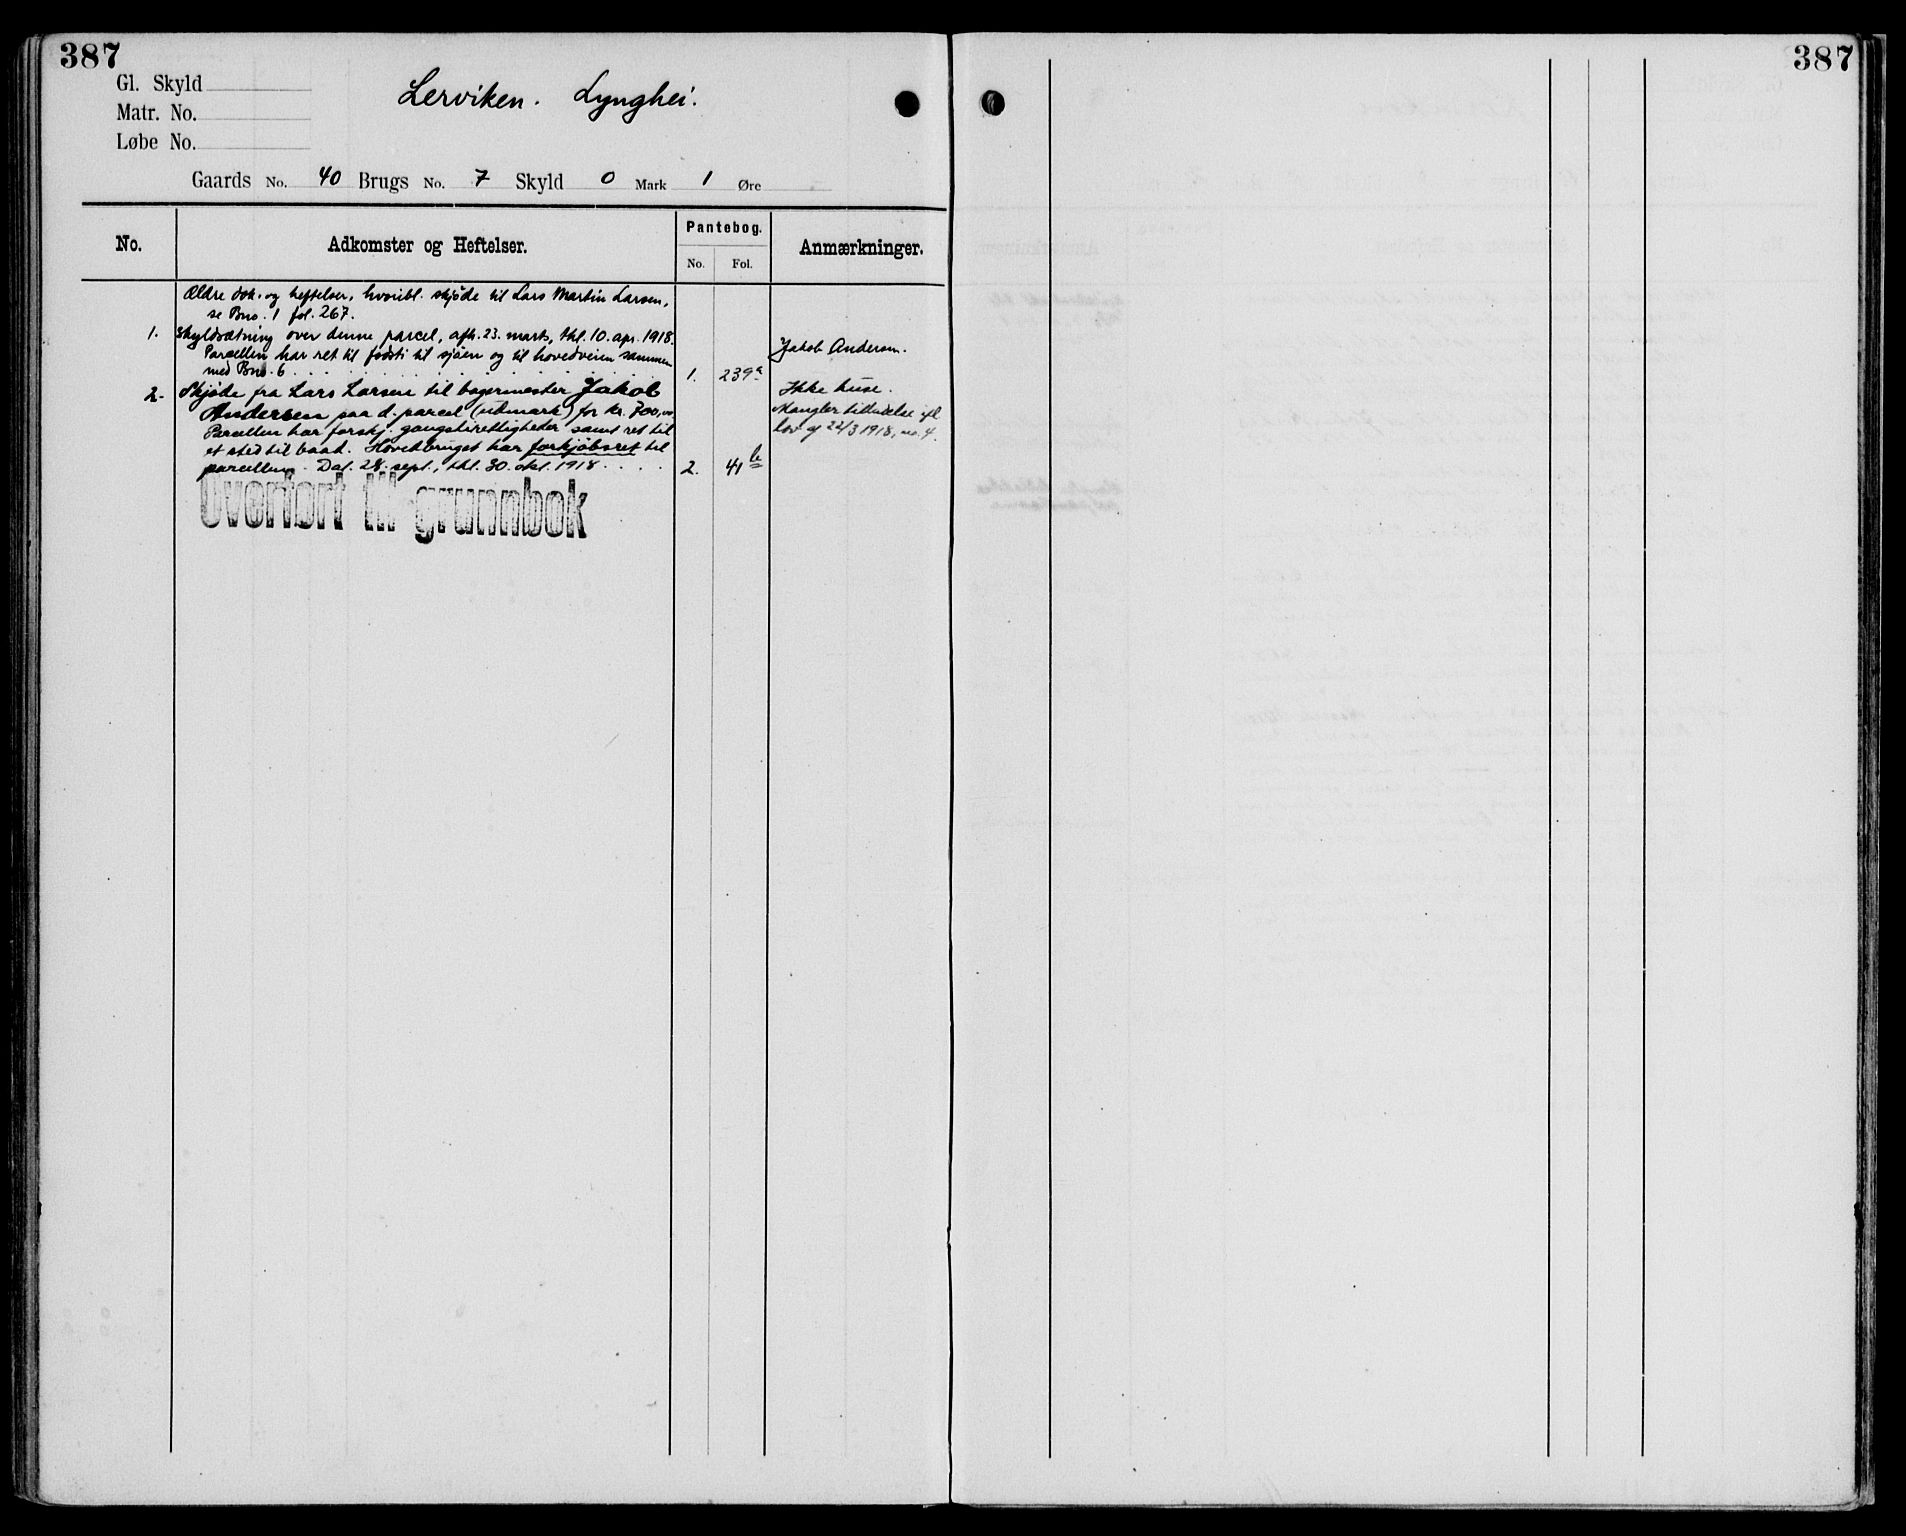 387
387
Gl. Skyld
Matr. No.
Løbe No.
Lerviken. Lynghei.
Gaards No. 40 Brugs No. 7 Skyld 0 Mark 1 Øre
No.
Adkomster og Heftelser.
Pantebog.
No. Fol.
Anmærkninger.
Ældre dok. og heftelser, hvoribl. skjøde til Lars Martin Larsen,
se Bno. 1 fol. 267.
1. Skyldsætning over denne parcel, afh. 23. marts, thl. 10. apr. 1918.
Parcellen har ret til fodsti til sjøen og til hovedveien sammen
med Bno. 6 . . . . . . . . . . 1. 239a
Jakob Andersen.
2. Skjøde fra Lars Larsen til bagermester Jakob
Andersen paa d. parcel (utmark) for kr. 700,00
Parcellen har forskj. gangstirettigheder samt ret til
et sted til baat. Hovedbruget har forkjøbsret til
parcellen. Dat. 28. sept., thl. 30. okt. 1918 . . . . 2. 41b
Ikke huse.
Mangler tilladelse ifl.
lov af 22/3 1918, no. 4.
Overført til grunnbok